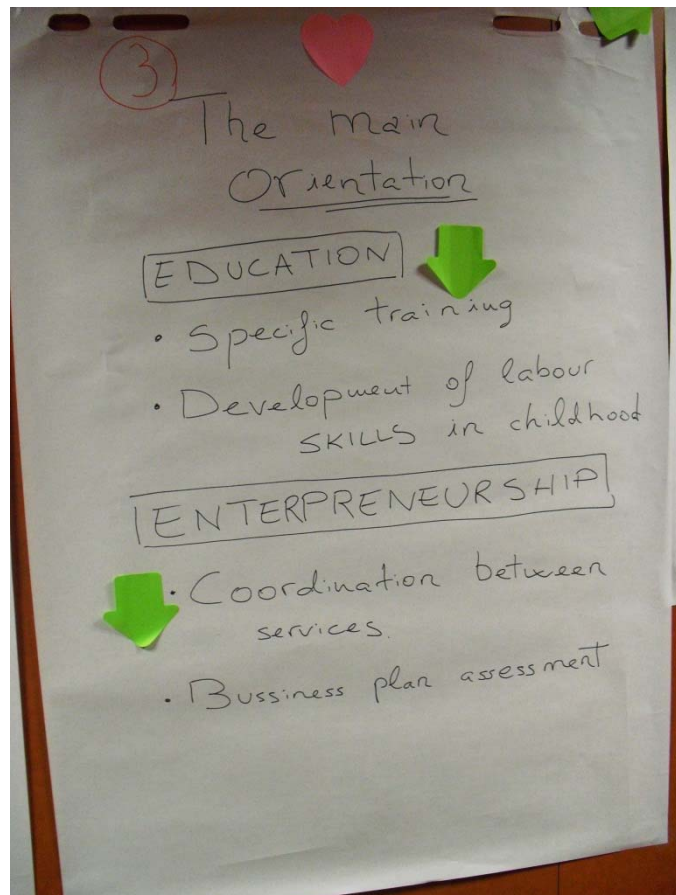 3
The main
Orientation
EDUCATION
• Specific training
• Development of labour
SKILLS in childhood
ENTERPRENEURSHIP
• Coordination between
services.
• Bussiness plan assessment